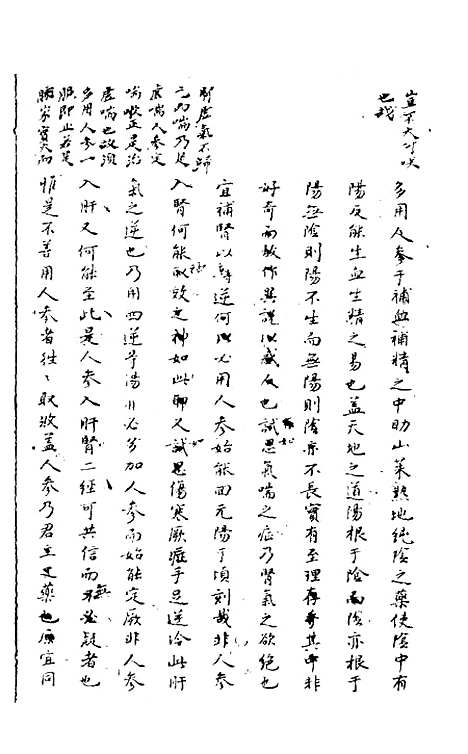 宜不大可
也哉
多用人參于補血補精之中助山萊熟地純陰之藥使陰中有
陽反能生血生精之易也蓋天地之道陽根于陰而陰亦根于
陽無陰則陽不生而無陽則陰亦不長實有至理存乎其中非
好奇而故作異說以惑人也試思氣喘之症乃腎氣之欲絕也
宜補腎以轉逆何以必用人參始能回元陽于頃刻哉非人參
入腎何能取效之神如此聊又試思傷寒厥症手足逆冷此肝
氣之逆也乃用四逆等湯必多加人參而始能定厥非人參
入肝又何能至此是人參入肝腎二經可共信而無疑者也
惟是不善用人參者往往取敗蓋人參乃君主之藥也應宜同
腎虛氣不歸
元而喘乃是
虛喘人參定
喘正是治
虛喘也故須
多用人參一
服即止若是
肺家實火而